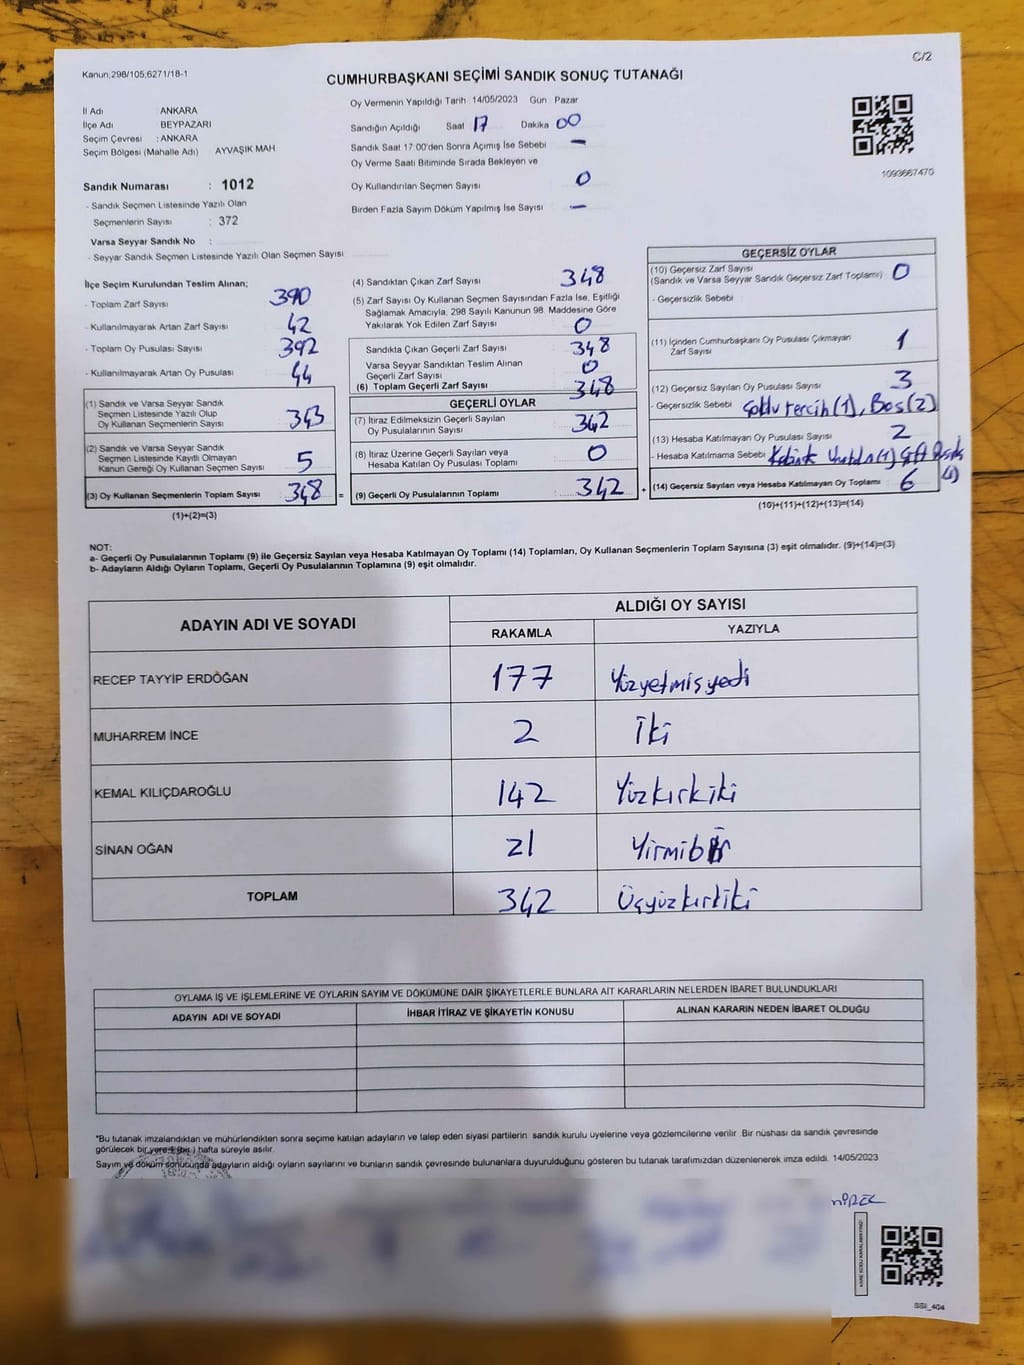 Kanun;298/105,6271/18-1
C/2
CUMHURBAŞKANI SEÇİMİ SANDIK SONUÇ TUTANAĞI
İl Adı ANKARA
İlçe Adı BEYPAZARI
Seçim Çevresi : ANKARA
Seçim Bölgesi (Mahalle Adı) AYVAŞIK MAH
Oy Vermenin Yapıldığı Tarih 14/05/2023 Gün Pazar
Sandığın Açıldığı Saat 17 Dakika 00
Sandık Saat 17:00'den Sonra Açımış İse Sebebi –
Oy Verme Saati Bitiminde Sırada Bekleyen ve
Oy Kullandırılan Seçmen Sayısı 0
Birden Fazla Sayım Döküm Yapılmış İse Sayısı –
1093667470
Sandık Numarası : 1012
- Sandık Seçmen Listesinde Yazılı Olan
Seçmenlerin Sayısı : 372
Varsa Seyyar Sandık No :
- Seyyar Sandık Seçmen Listesinde Yazılı Olan Seçmen Sayısı
İlçe Seçim Kurulundan Teslim Alınan;
- Toplam Zarf Sayısı 390
- Kullanılmayarak Artan Zarf Sayısı 42
- Toplam Oy Pusulası Sayısı 392
- Kullanılmayarak Artan Oy Pusulası 44
(1) Sandık ve Varsa Seyyar Sandık
Seçmen Listesinde Yazılı Olup
Oy Kullanan Seçmenlerin Sayısı 343
(2) Sandık ve Varsa Seyyar Sandık
Seçmen Listesinde Kayıtlı Olmayan
Kanun Gereği Oy Kullanan Seçmen Sayısı 5
(3) Oy Kullanan Seçmenlerin Toplam Sayısı 348 =
(1)+(2)=(3)
(4) Sandıktan Çıkan Zarf Sayısı 348
(5) Zarf Sayısı Oy Kullanan Seçmen Sayısından Fazla İse, Eşitliği
Sağlamak Amacıyla, 298 Sayılı Kanunun 98. Maddesine Göre
Yakılarak Yok Edilen Zarf Sayısı 0
Sandıkta Çıkan Geçerli Zarf Sayısı : 348
Varsa Seyyar Sandıktan Teslim Alınan
Geçerli Zarf Sayısı : 0
(6) Toplam Geçerli Zarf Sayısı : 348
GEÇERLİ OYLAR
(7) İtiraz Edilmeksizin Geçerli Sayılan
Oy Pusulalarının Sayısı : 342
(8) İtiraz Üzerine Geçerli Sayılan veya
Hesaba Katılan Oy Pusulası Toplamı : 0
(9) Geçerli Oy Pusulalarının Toplamı : 342 +
GEÇERSİZ OYLAR
(10) Geçersiz Zarf Sayısı
(Sandık ve Varsa Seyyar Sandık Geçersiz Zarf Toplamı) 0
- Geçersizlik Sebebi
(11) İçinden Cumhurbaşkanı Oy Pusulası Çıkmayan
Zarf Sayısı 1
(12) Geçersiz Sayılan Oy Pusulası Sayısı 3
- Geçersizlik Sebebi Çoklu tercih(1), Boş(2)
(13) Hesaba Katılmayan Oy Pusulası Sayısı 2
- Hesaba Katılmama Sebebi (1) çift (1)
(14) Geçersiz Sayılan veya Hesaba Katılmayan Oy Toplamı 6
(10)+(11)+(12)+(13)=(14)
NOT:
a- Geçerli Oy Pusulalarının Toplamı (9) ile Geçersiz Sayılan veya Hesaba Katılmayan Oy Toplamı (14) Toplamları, Oy Kullanan Seçmenlerin Toplam Sayısına (3) eşit olmalıdır. (9)+(14)=(3)
b- Adayların Aldığı Oyların Toplamı, Geçerli Oy Pusulalarının Toplamına (9) eşit olmalıdır.
ADAYIN ADI VE SOYADI ALDIĞI OY SAYISI
RAKAMLA YAZIYLA
RECEP TAYYİP ERDOĞAN 177 Yüzyetmişyedi
MUHARREM İNCE 2 İki
KEMAL KILIÇDAROĞLU 142 Yüzkırkiki
SİNAN OĞAN 21 Yirmibir
TOPLAM 342 Üçyüzkırkiki
OYLAMA İŞ VE İŞLEMLERİNE VE OYLARIN SAYIM VE DÖKÜMÜNE DAİR ŞİKAYETLERLE BUNLARA AİT KARARLARIN NELERDEN İBARET BULUNDUKLARI
ADAYIN ADI VE SOYADI İHBAR İTİRAZ VE ŞİKAYETİN KONUSU ALINAN KARARIN NEDEN İBARET OLDUĞU
*Bu tutanak imzalandıktan ve mühürlendikten sonra seçime katılan adayların ve talep eden siyasi partilerin sandık kurulu üyelerine veya gözlemcilerine verilir. Bir nüshası da sandık çevresinde
görülecek bir yere 1 (bir) hafta süreyle asılır.
Sayım ve döküm sonucunda adayların aldığı oyların sayılarını ve bunların sandık çevresinde bulunanlara duyurulduğunu gösteren bu tutanak tarafımızdan düzenlenerek imza edildi. 14/05/2023
SSI_4G4